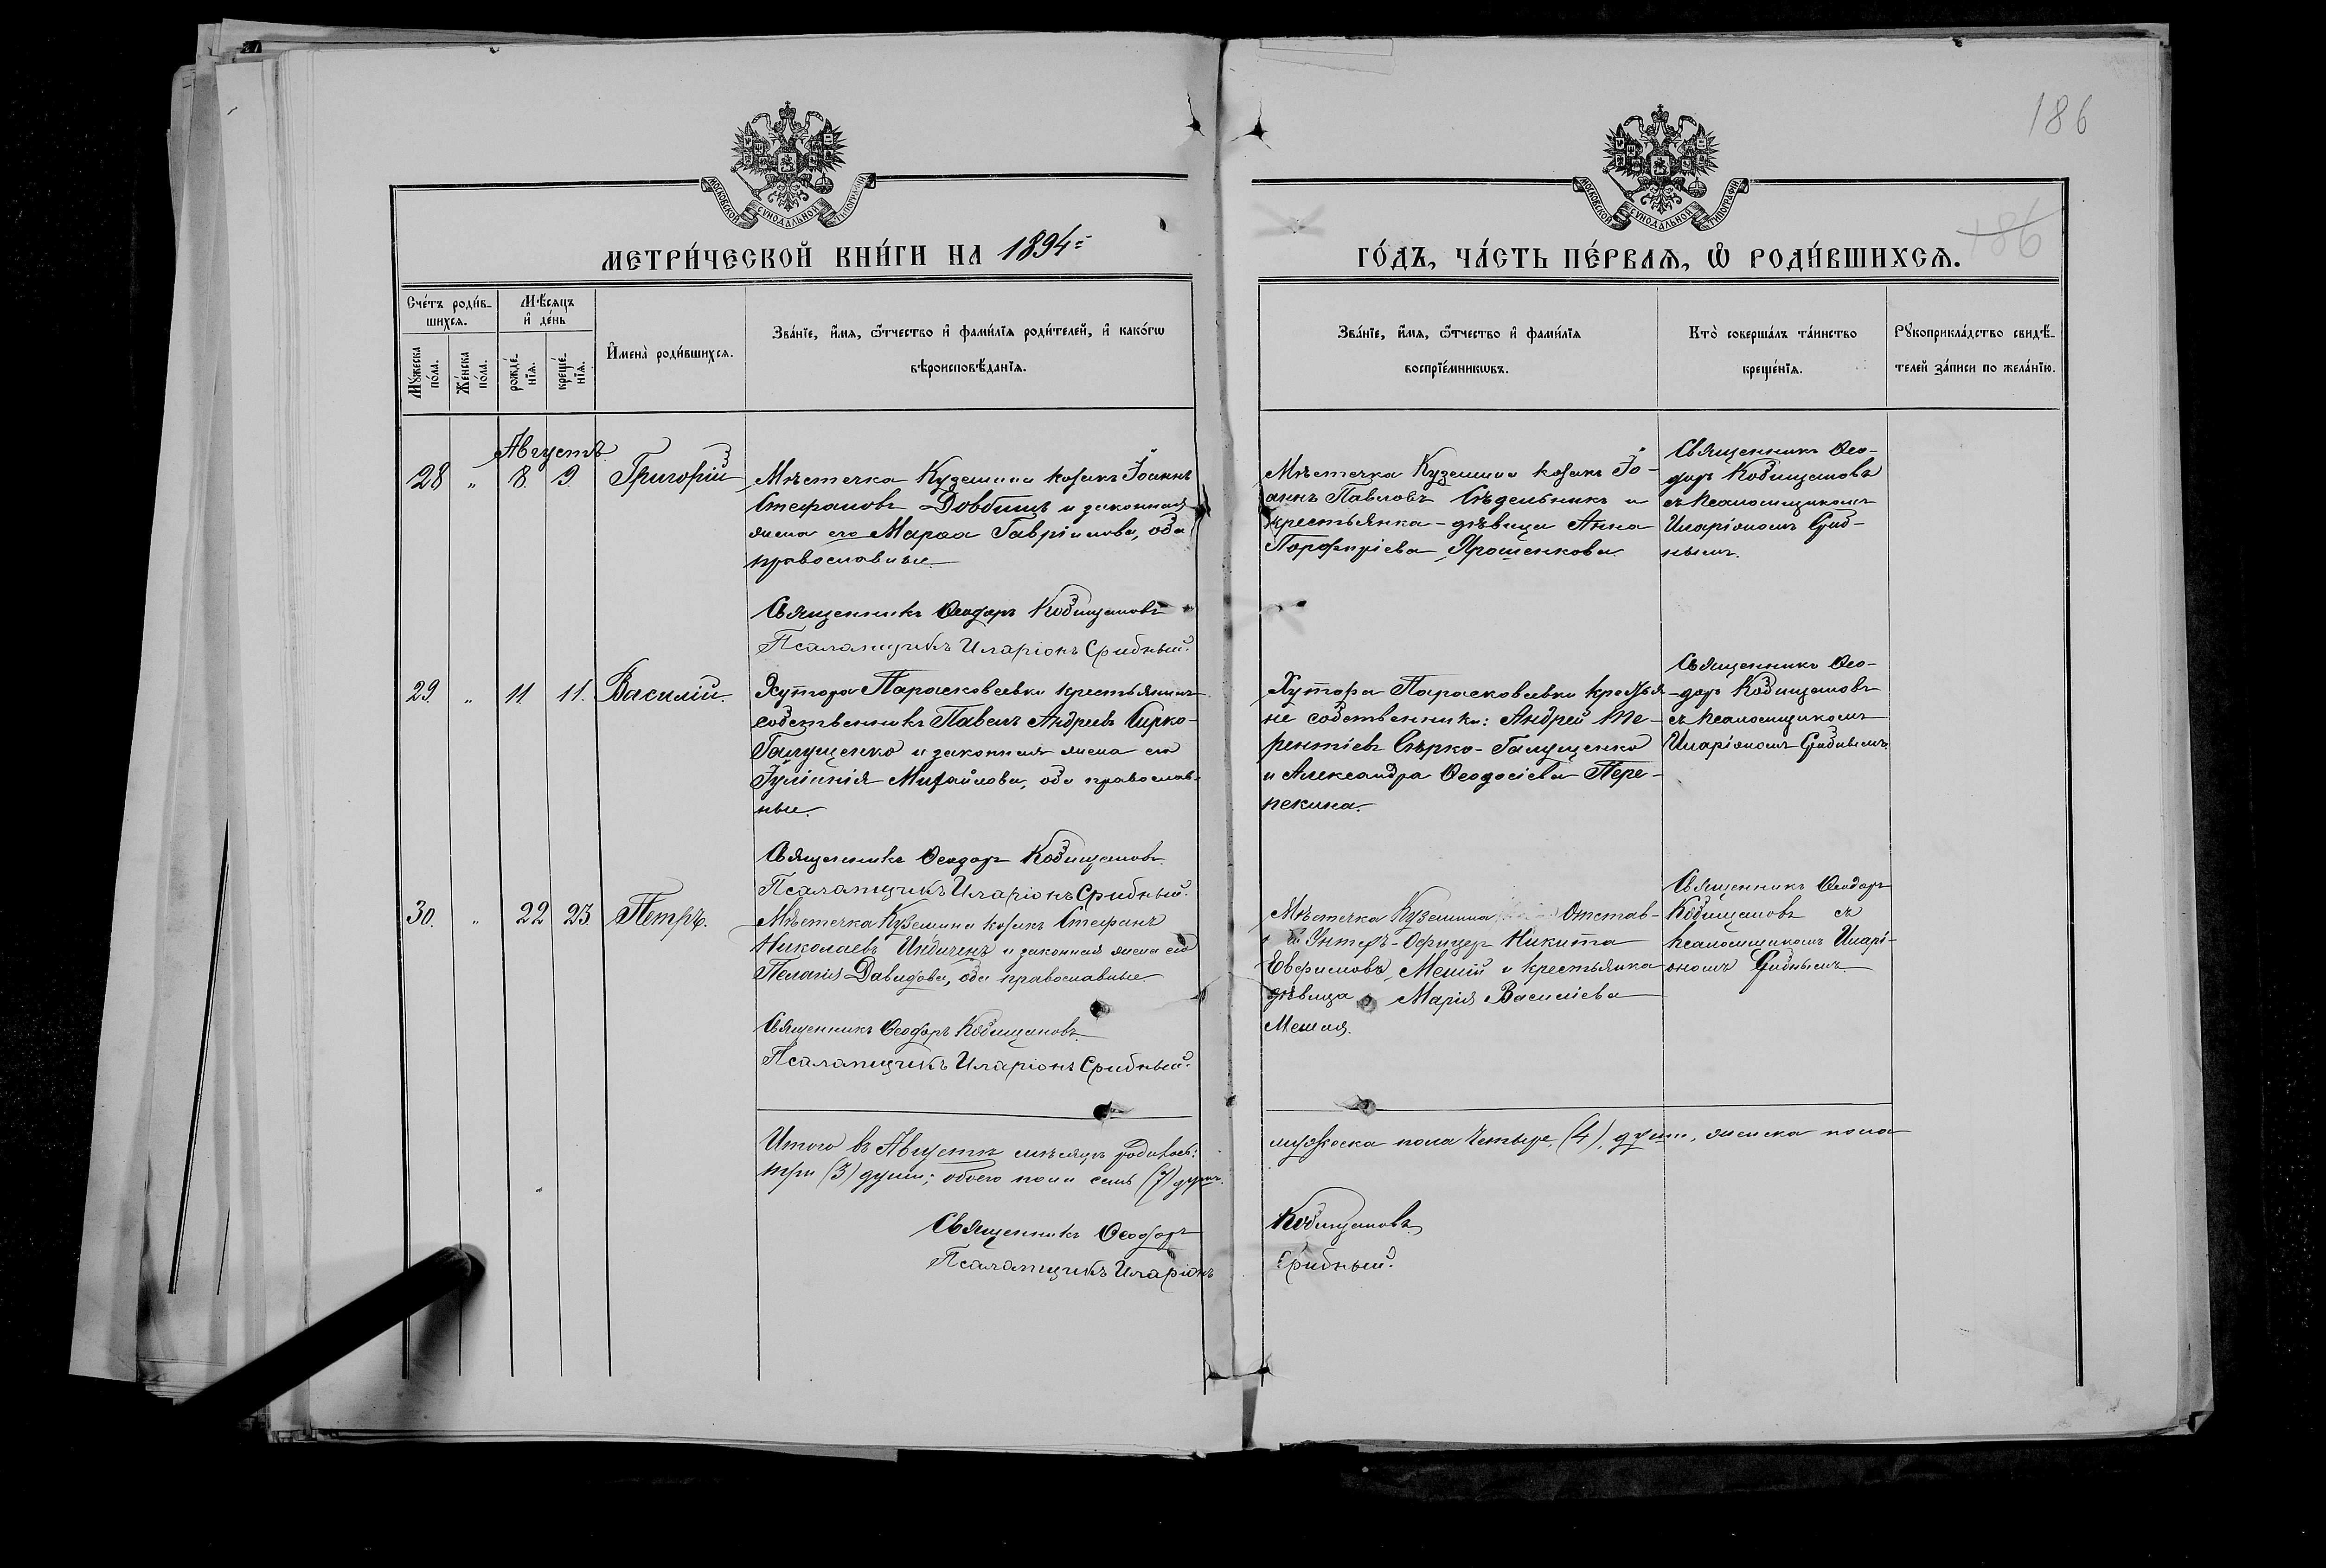 186
МОСКОВСКОЙ СУНОДАЛЬНОЙ ТИПОГРАФІИ
МОСКОВСКОЙ СУНОДАЛЬНОЙ ТИПОГРАФІИ
186
МЕТРИ́ЧЕСКОЙ КНИ́ГИ НА 1894
ГО́ДЪ, ЧА́СТЬ ПЕ́РВАѦ, Ѡ҆ РОДИ́ВШИХСѦ.
Сче́тъ роди́в-
шихсѧ.
Мꙋ́жеска
по́ла.
Же́нска
по́ла.
Мѣ́сѧцъ
и҆ де́нь
рожде́-
нїѧ.
креще́-
нїѧ.
И҆мена̀ роди́вшихсѧ.
Зва́нїе, и҆́мѧ, ѻ҆́тчество и҆ фами́лїѧ роди́телей, и҆ како́гѡ
вѣроисповѣ́данїѧ.
Зва́нїе, и҆́мѧ, ѻ҆́тчество и҆ фами́лїѧ
воспрїе́мникѡвъ.
Кто̀ соверша́лъ та́инство
креще́нїѧ.
Рꙋкоприкла́дство свидѣ́-
телей за́писи по жела́нїю.
Августъ
28 " 8. 9. Григорій
Мѣстечка Куземина козакъ Іоаннъ
Стефановъ Довбышъ и законная
жена его Марѳа Гавріилова, оба
православные.
Священникъ Ѳеодоръ Кобищановъ
Псаломщикъ Иларіонъ Срибный.
Мѣстечка Куземина козакъ Іо-
аннъ Павловъ Сѣдельникъ и
крестьянка-дѣвица Анна
Порфиріева Ярошенкова
Священникъ Ѳео-
доръ Кобищановъ
съ псаломщикомъ
Иларіономъ Сриб-
нымъ.
29. " 11. 11. Василій.
Хутора Парасковеевки крестьянинъ
собственникъ Павелъ Андреевъ Сирко-
Галущенко и законная жена его
Іуліанія Михайлова, оба православ-
ные.
Священникъ Ѳеодоръ Кобищановъ
Псаломщикъ Иларіонъ Срибный.
Хутора Парасковеевки крестья-
не собственники: Андрей Те-
рентіевъ Сѣрко-Галущенко
и Александра Ѳеодосіева Пере-
пекина.
Священникъ Ѳео-
доръ Кобищановъ
съ псаломщикомъ
Иларіономъ Срибнымъ
30. " 22 23 Петръ.
Мѣстечка Куземина козакъ Стефанъ
Николаевъ и законная жена его
Пелагія Давидова, оба православные.
Священникъ Ѳеодоръ Кобищановъ.
Псаломщикъ Иларіонъ Срибный.
Мѣстечка Куземина Отстав-
Унтеръ-Офицеръ Никита
Евфимовъ и крестьянка
дѣвица Марія Василіева
Священникъ Ѳеодоръ
Кобищановъ съ
псаломщикомъ Иларі-
ономъ Срибнымъ
Итого въ Августѣ мѣсяцѣ родилось: мужеска пола четыре (4) души, женска пола
три (3) души; обоего пола семь (7) душъ.
Священникъ Ѳеодоръ Кобищановъ
Псаломщикъ Иларіонъ Срибный.